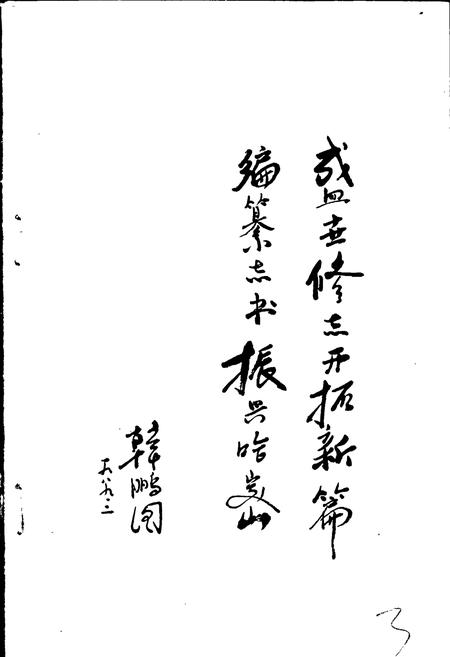 盛世修志开拓新篇
编纂志书振兴哈密
韩鹏图
一九八九.三
3